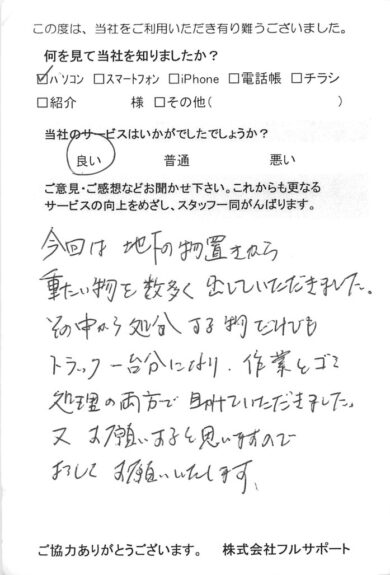 この度は、当社をご利用いただき有り難うございました。
何を見て当社を知りましたか？
☑パソコン □スマートフォン □iPhone □電話帳 □チラシ
□紹介　　　様 □その他(　　　　　　　)
当社のサービスはいかがでしたでしょうか？
良い　　普通　　悪い
ご意見・ご感想などお聞かせ下さい。これからも更なる
サービスの向上をめざし、スタッフ一同がんばります。
今回は 地下の物置きから
重たい物を 数多く 出していただきました。
その中から処分する物だけでも
トラック一台分になり、作業とゴミ
処理の両方で 助けていただきました。
又 お願いすると思いますので
よろしく お願いいたします。
ご協力ありがとうございます。　株式会社フルサポート